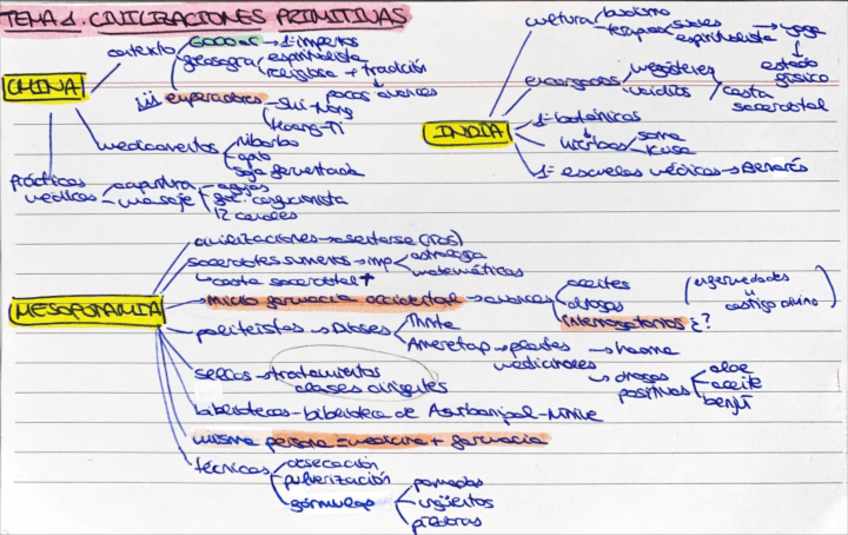 TEMA 1. CIVILIZACIONES PRIMITIVAS
CHINA
contexto
6000 ac → 1ᵒˢ imperios
geografía
espiritualista
religiosa + tradición
pocos avances
¡¡¡ emperadores
Shi-Nong
Hoang-Ti
medicamentos
ruibarbo
opio
soja fermentada
prácticas médicas
acupuntura
masaje
agujas
12 canales
INDIA
cultura
budismo
terapias
espiritualista
→ yoga
↓
estado físico
encargados
casta sacerdotal
1ᵒˢ botánicos
↓
hierbas
soma
kusa
1ᵃˢ escuelas médicas → Benarés
MESOPOTAMIA
civilizaciones → asentarse (ríos)
sacerdotes sumerios → imp
astrología
matemáticas
↳ casta sacerdotal ↑
→ inicio farmacia occidental → avances
aceites
drogas
interrogatorios ¿?
(enfermedades
"
castigo divino)
politeístas → Dioses
Ameretap → plantas medicinales
→ haoma
↳ drogas positivas
aloe
aceite
benjuí
sellos → tratamientos clases dirigentes
bibliotecas - biblioteca de Asurbanipal - Nínive
misma persona = medicina + farmacia
técnicas
desecación
pulverización
fórmulas
pomadas
ungüentos
píldoras